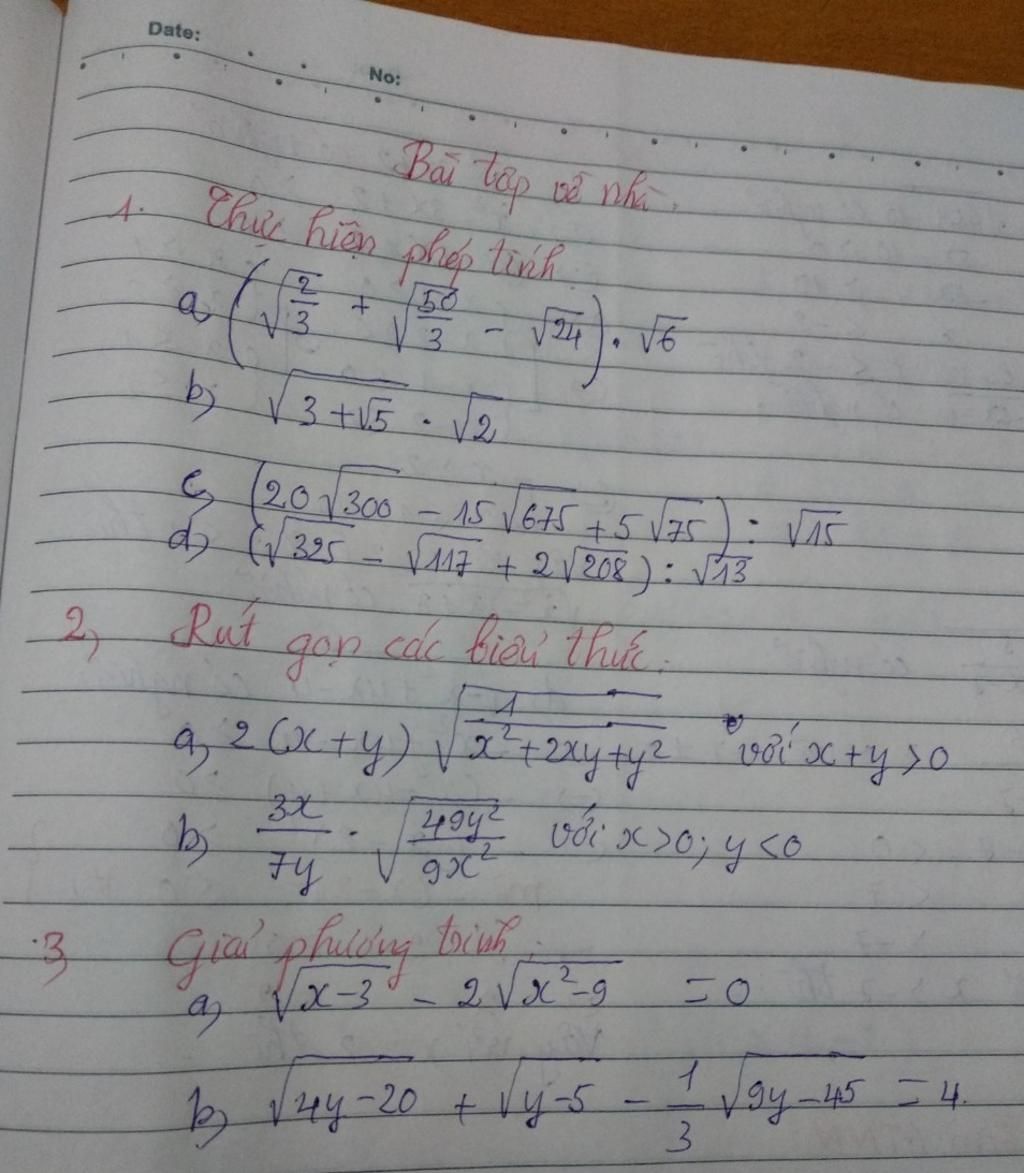 Date:
No:
Bài tập về nhà.
1. Thực hiện phép tính
a, (√(2/3) + √(50/3) - √24) . √6
b, √(3+√5) . √2
c, (20√300 - 15√675 + 5√75) : √15
d, (√325 - √117 + 2√208) : √13
2, Rút gọn các biểu thức.
a, 2(x+y) √(1/(x²+2xy+y²)) với x+y>0
b, 3x/7y . √(49y²/9x²) với x>0; y<0
3, Giải phương trình.
a, √(x-3) - 2√(x²-9) = 0
b, √(4y-20) + √(y-5) - 1/3 √(9y-45) = 4.